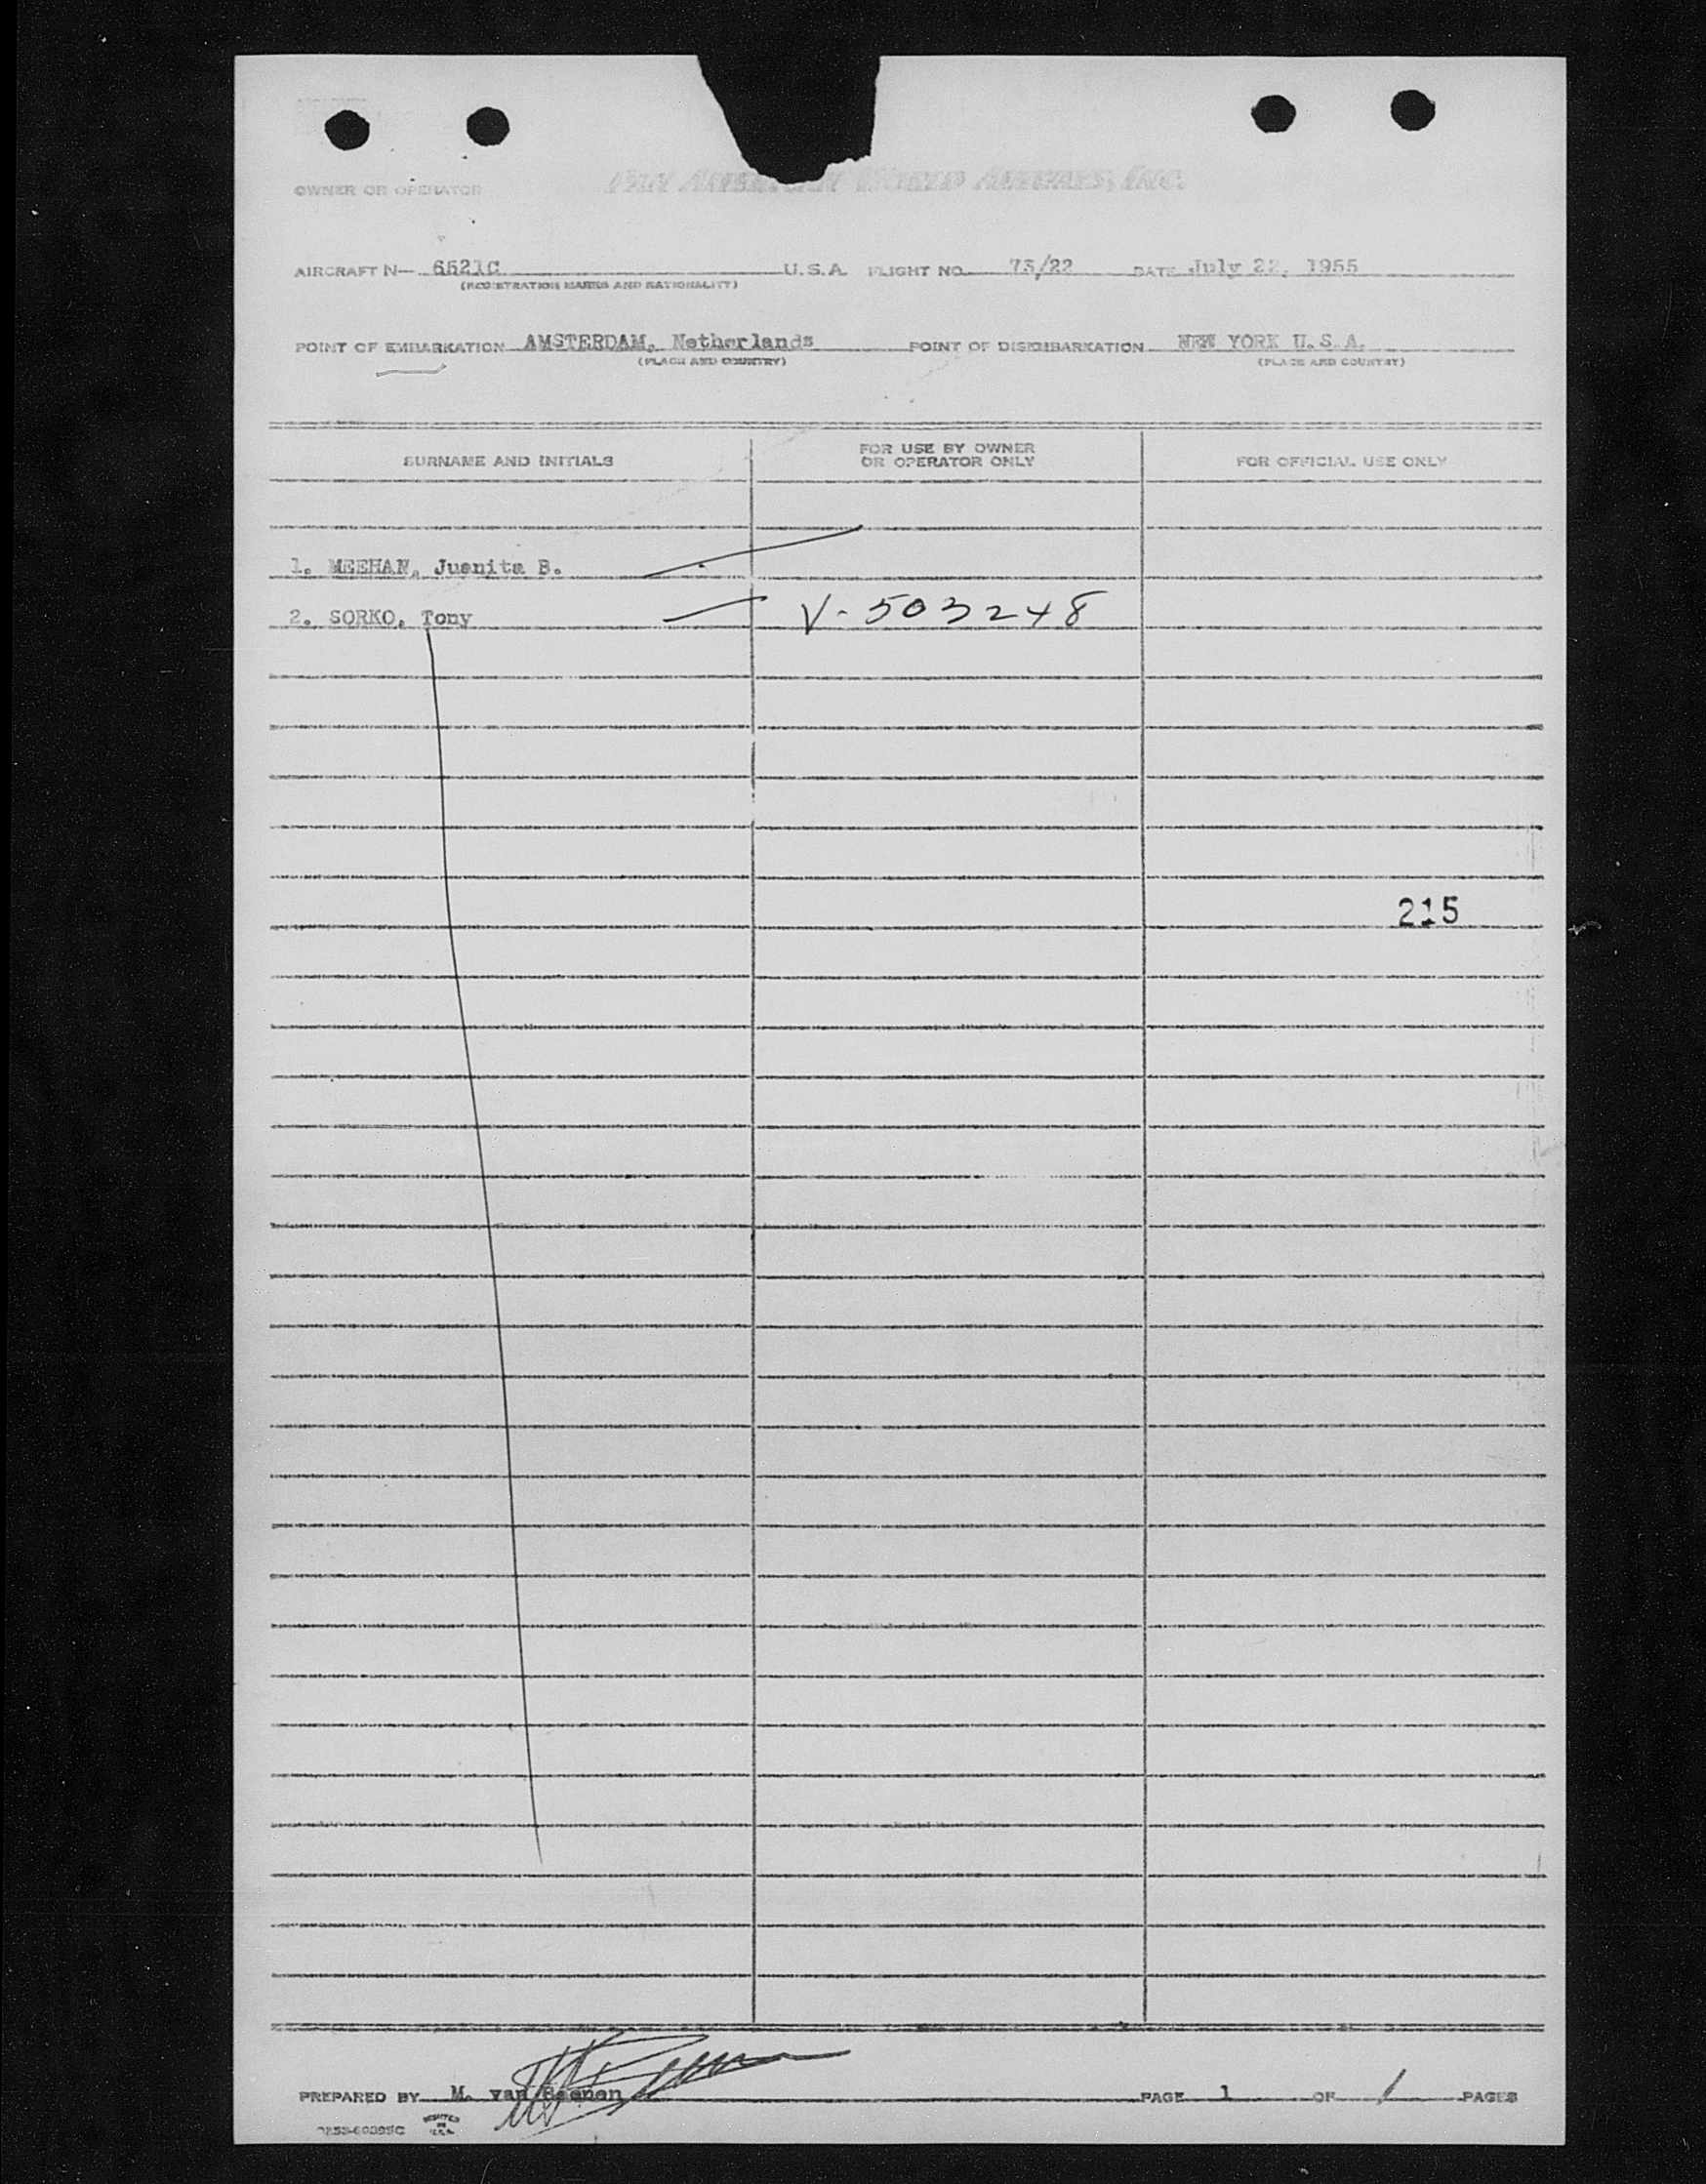 OWNER OR OPERATOR PAN AMERICAN WORLD AIRWAYS, INC.
AIRCRAFT N— 6521C U.S.A. FLIGHT NO. 73/22 DATE July 22, 1955
(REGISTRATION MARKS AND NATIONALITY)
POINT OF EMBARKATION AMSTERDAM, Netherlands POINT OF DISEMBARKATION NEW YORK U.S.A.
(PLACE AND COUNTRY) (PLACE AND COUNTRY)
SURNAME AND INITIALS FOR USE BY OWNER OR OPERATOR ONLY FOR OFFICIAL USE ONLY
1. MEEHAN, Juanita B.
2. SORKO, Tony V-503248
215
PREPARED BY M. van PAGE 1 OF 1 PAGES
PRINTED IN U.S.A.